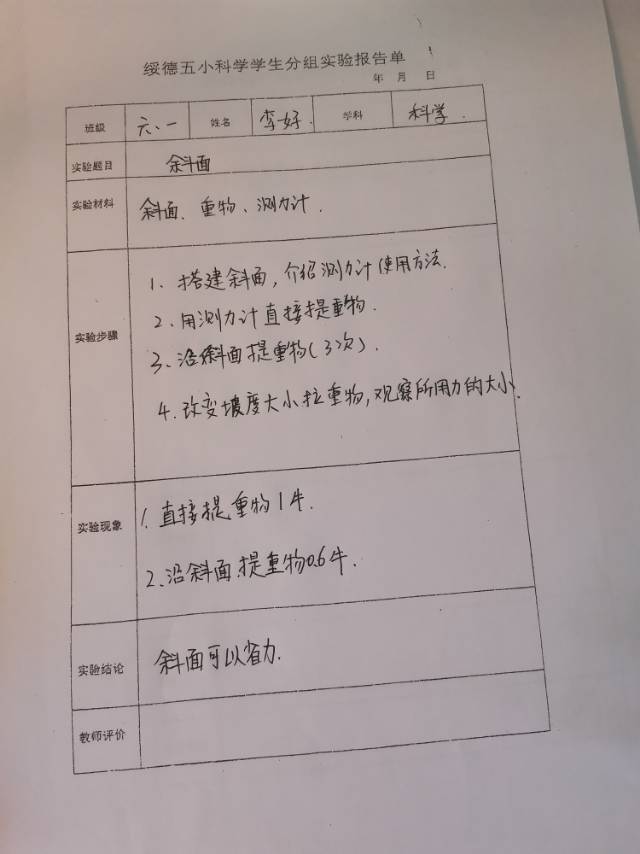 绥德五小科学学生分组实验报告单
年 月 日
班级 六、一 姓名 李好. 学科 科学.
实验题目 斜面
实验材料 斜面、重物、测力计.
实验步骤
1、搭建斜面,介绍测力计使用方法.
2、用测力计直接提重物.
3、沿斜面提重物(3次).
4、改变坡度大小拉重物,观察所用力的大小.
实验现象
1、直接提重物1牛.
2、沿斜面提重物0.6牛.
实验结论 斜面可以省力.
教师评价